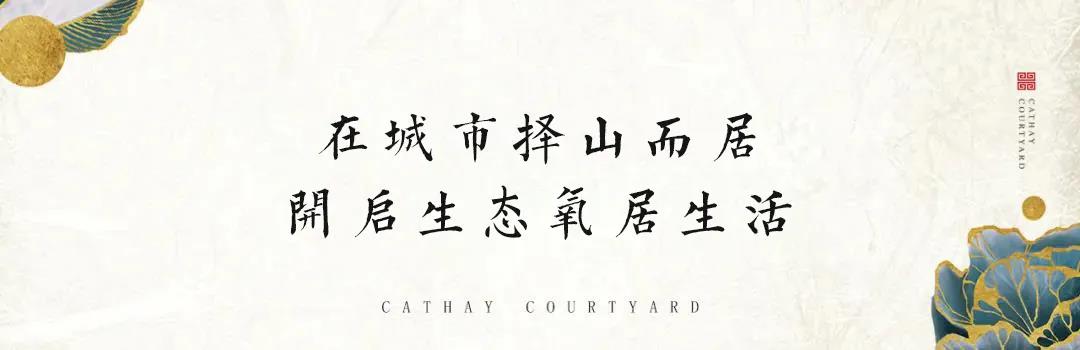 在城市择山而居
開启生态氧居生活
CATHAY COURTYARD
CATHAY
COURTYARD